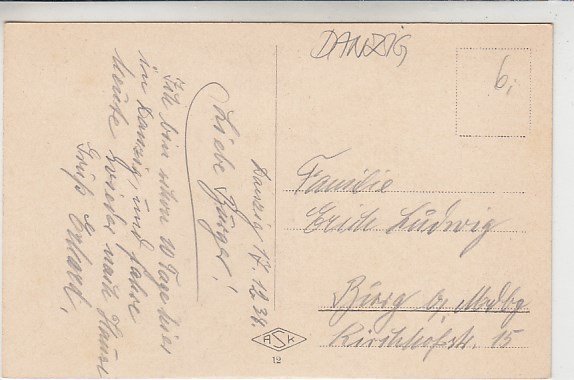 DANZIG
6,
Danzig 17.12.38.
Liebe Bürger!
Ich bin schon 10 Tage hier
in Danzig, und fahre
heute wieder nach Hause
Gruß Erhard.
Familie
Erich Ludwig
Burg b. Mgdbg
Kirchhofstr. 15
A S K
12